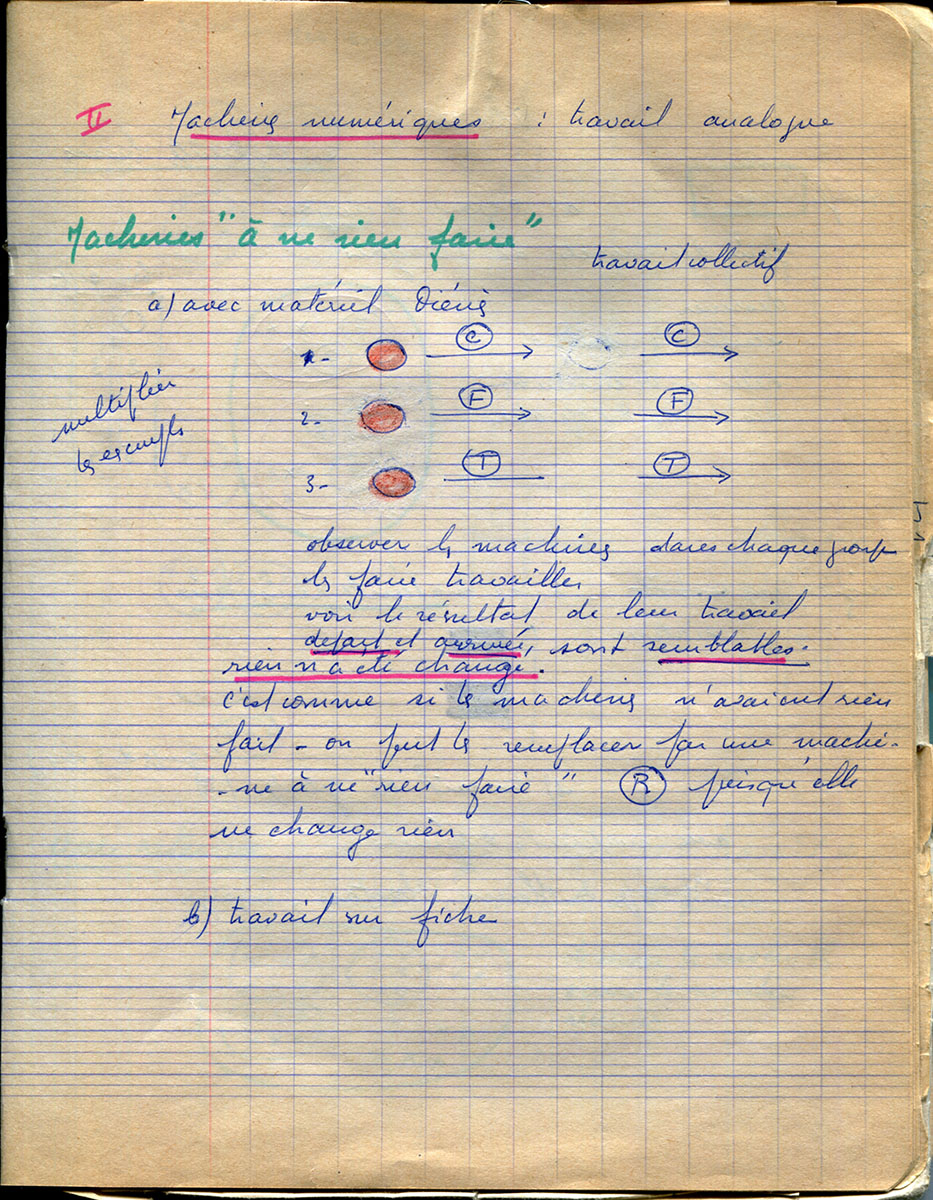 II Machines numériques : travail analogue
Machines "à ne rien faire"
travail collectif
a) avec matériel Diénès
1- C C
2- F F
3- T T
multiplier
les exemples
observer les machines dans chaque groupe
les faire travailler
voir le résultat de leur travail
départ et arrivée, sont semblables.
rien n'a été changé.
c'est comme si les machines n'avaient rien
fait - on peut les remplacer par une machi-
-ne à ne "rien faire" R puisqu'elle
ne change rien
b) travail sur fiche